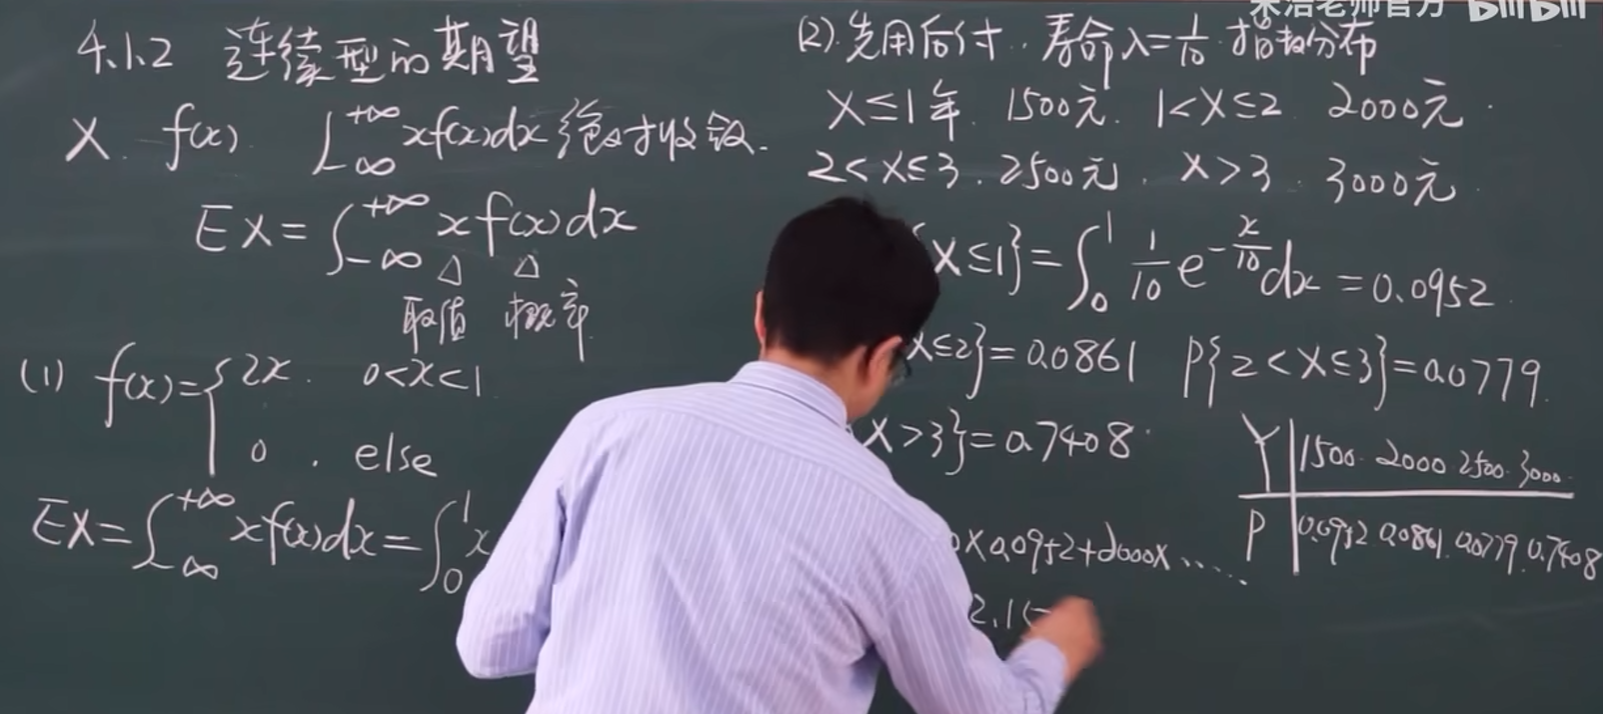 4.1.2 连续型的期望
X. f(x) ∫_{-∞}^{+∞} xf(x)dx 绝对收敛.
EX = ∫_{-∞}^{+∞} x f(x)dx
△ △
取值 概率
(1) f(x) = { 2x. 0<x<1
0 . else
EX = ∫_{-∞}^{+∞} xf(x)dx = ∫_0^1 x
宋浩老师官方 bilibili
(2). 先用后付.. 寿命 λ=1/10 指数分布
X≤1年. 1500元. 1<X≤2 2000元.
2<X≤3. 2500元. X>3. 3000元.
X≤1} = ∫_0^1 1/10 e^{-x/10} dx = 0.0952.
X≤2} = 0.0861 P{2<X≤3} = 0.0779.
X>3} = 0.7408.
Y | 1500. 2000. 2500. 3000.
P | 0.0952 0.0861. 0.0779. 0.7408
0×0.0952+2000×......
2.15